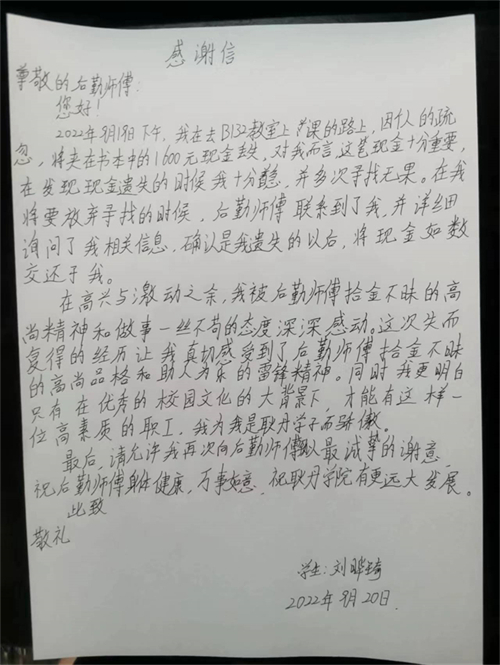 感谢信
尊敬的后勤师傅:
您好!
2022年9月19日下午,我在去B132教室上课的路上,因个人的疏
忽,将夹在书本中的1600元现金丢失,对我而言,这笔现金十分重要,
在发现现金遗失的时候我十分着急,并多次寻找无果。在我
将要放弃寻找的时候,后勤师傅联系到了我,并详细
询问了我相关信息,确认是我遗失的以后,将现金如数
交还于我。
在高兴与激动之余,我被后勤师傅拾金不昧的高
尚精神和做事一丝不苟的态度深深感动。这次失而
复得的经历让我真切感受到了后勤师傅拾金不昧
的高尚品格和助人为乐的雷锋精神。同时我更明白
只有在优秀的校园文化的大背景下,才能有这样一
位高素质的职工,我为我是耿丹学子而骄傲。
最后,请允许我再次向后勤师傅致以最诚挚的谢意
祝后勤师傅身体健康,万事如意,祝耿丹学院有更远大发展。
此致
敬礼
学生:刘晔琦
2022年9月20日.